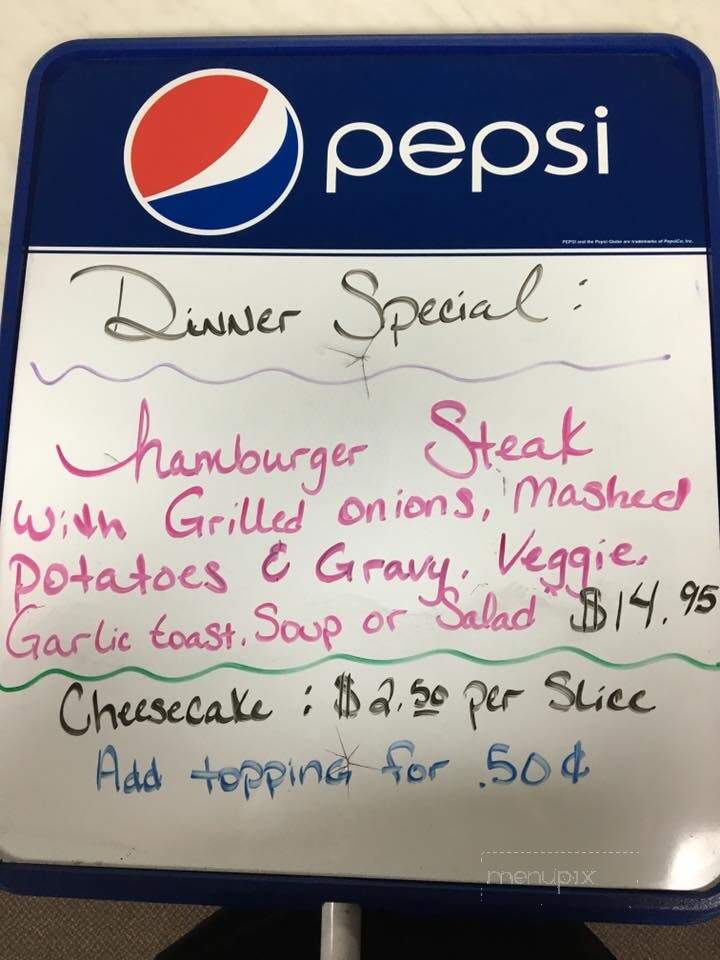 pepsi
PEPSI and the Pepsi Globe are trademarks of PepsiCo, Inc.
Dinner Special :
hamburger Steak
With Grilled onions, Mashed
potatoes & Gravy, Veggie,
Garlic toast, Soup or Salad $14.95
Cheesecake : $2.50 per Slice
Add topping for .50¢
menupix